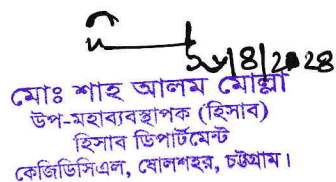 মোঃ শাহ আলম মোল্লা
উপ-মহাব্যবস্থাপক (হিসাব)
হিসাব ডিপার্টমেন্ট
কেজিডিসিএল, ষোলশহর, চট্টগ্রাম।